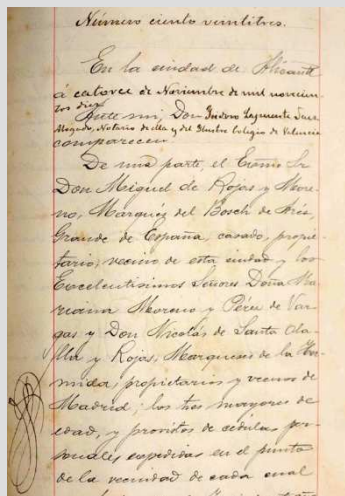 Número ciento veintitres.
En la ciudad de Alicante
á catorce de Noviembre de mil novecien-
tos diez
Ante mi, Don
Abogado, Notario de ella y del Ilustre Colegio de Valencia
comparecen
De una parte, el Excmo Sr
Don Miguel de Rojas y More-
no, Marqués del Bosch de Arés,
Grande de España, casado, propie-
tario, vecino de esta ciudad y los
Excelentísimos Señores Doña Ma-
riana Moreno y Pérez de Var-
gas y Don Nicolás de Santa Ola-
lla y Rojas, Marqueses de la Hor-
mida, propietarios y vecinos de
Madrid; los tres mayores de
edad, y provistos de cédulas per-
sonales expedidas en el punto
de la vecindad de cada cual